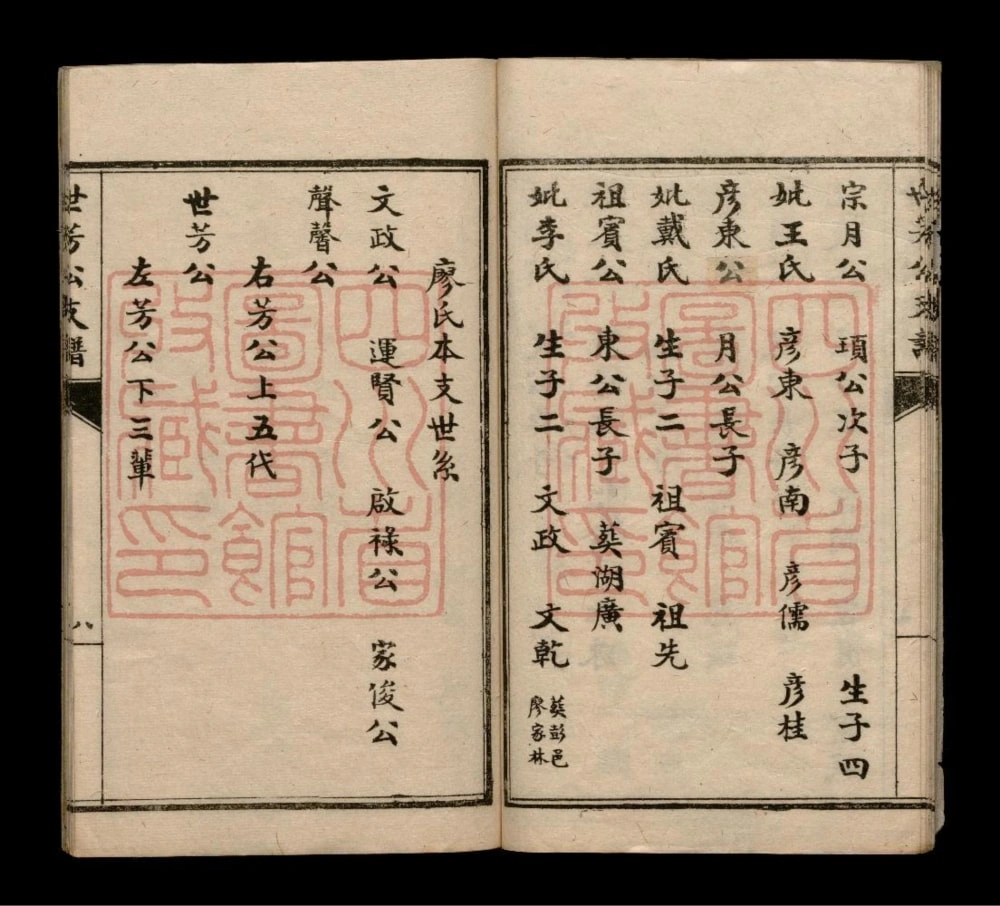 宗月公 頊公次子 生子四
妣王氏 彦東 彦南 彦儒 彦桂
彦東公 月公長子
妣戴氏 生子二 祖賓 祖先
祖賓公 東公長子 葬湖廣
妣李氏 生子二 文政 文乾 葬彭邑
廖家林
世芳公支譜
廖氏本支世系
文政公 運賢公 啟祿公 家俊公
聲馨公
右芳公上五代
世芳公
左芳公下三輩
世芳公支譜
八
四川省
圖書館
收藏印
四川省
圖書館
收藏印